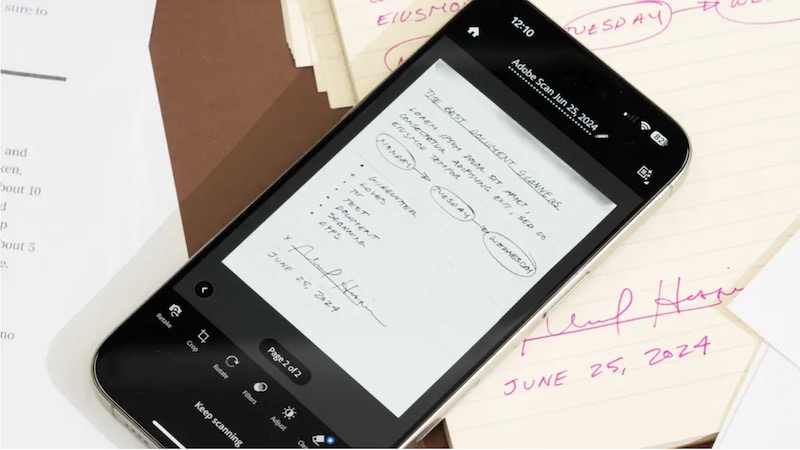 sure to
and
ken,
bout 10
d
p
bout 5
e.
no
EIUSMOD
TUESDAY
12:10
82
Adobe Scan Jun 25, 2024
THE BEST DOCUMENT SCANNERS
LOREM IPSUM DOLOR SIT AMET
CONSECTETUR ADIPISCING ELIT, SED DO
EIUSMOD TEMPOR
MONDAY → TUESDAY → WEDNESDAY
• WIRECUTTER
• LOVES
• TO
• TEST
• DOCUMENT
• SCANNING
• APPS
x
JUNE 25, 2024
Page 2 of 2
Retake
Crop
Rotate
Filters
Adjust
Keep scanning
JUNE 25, 2024